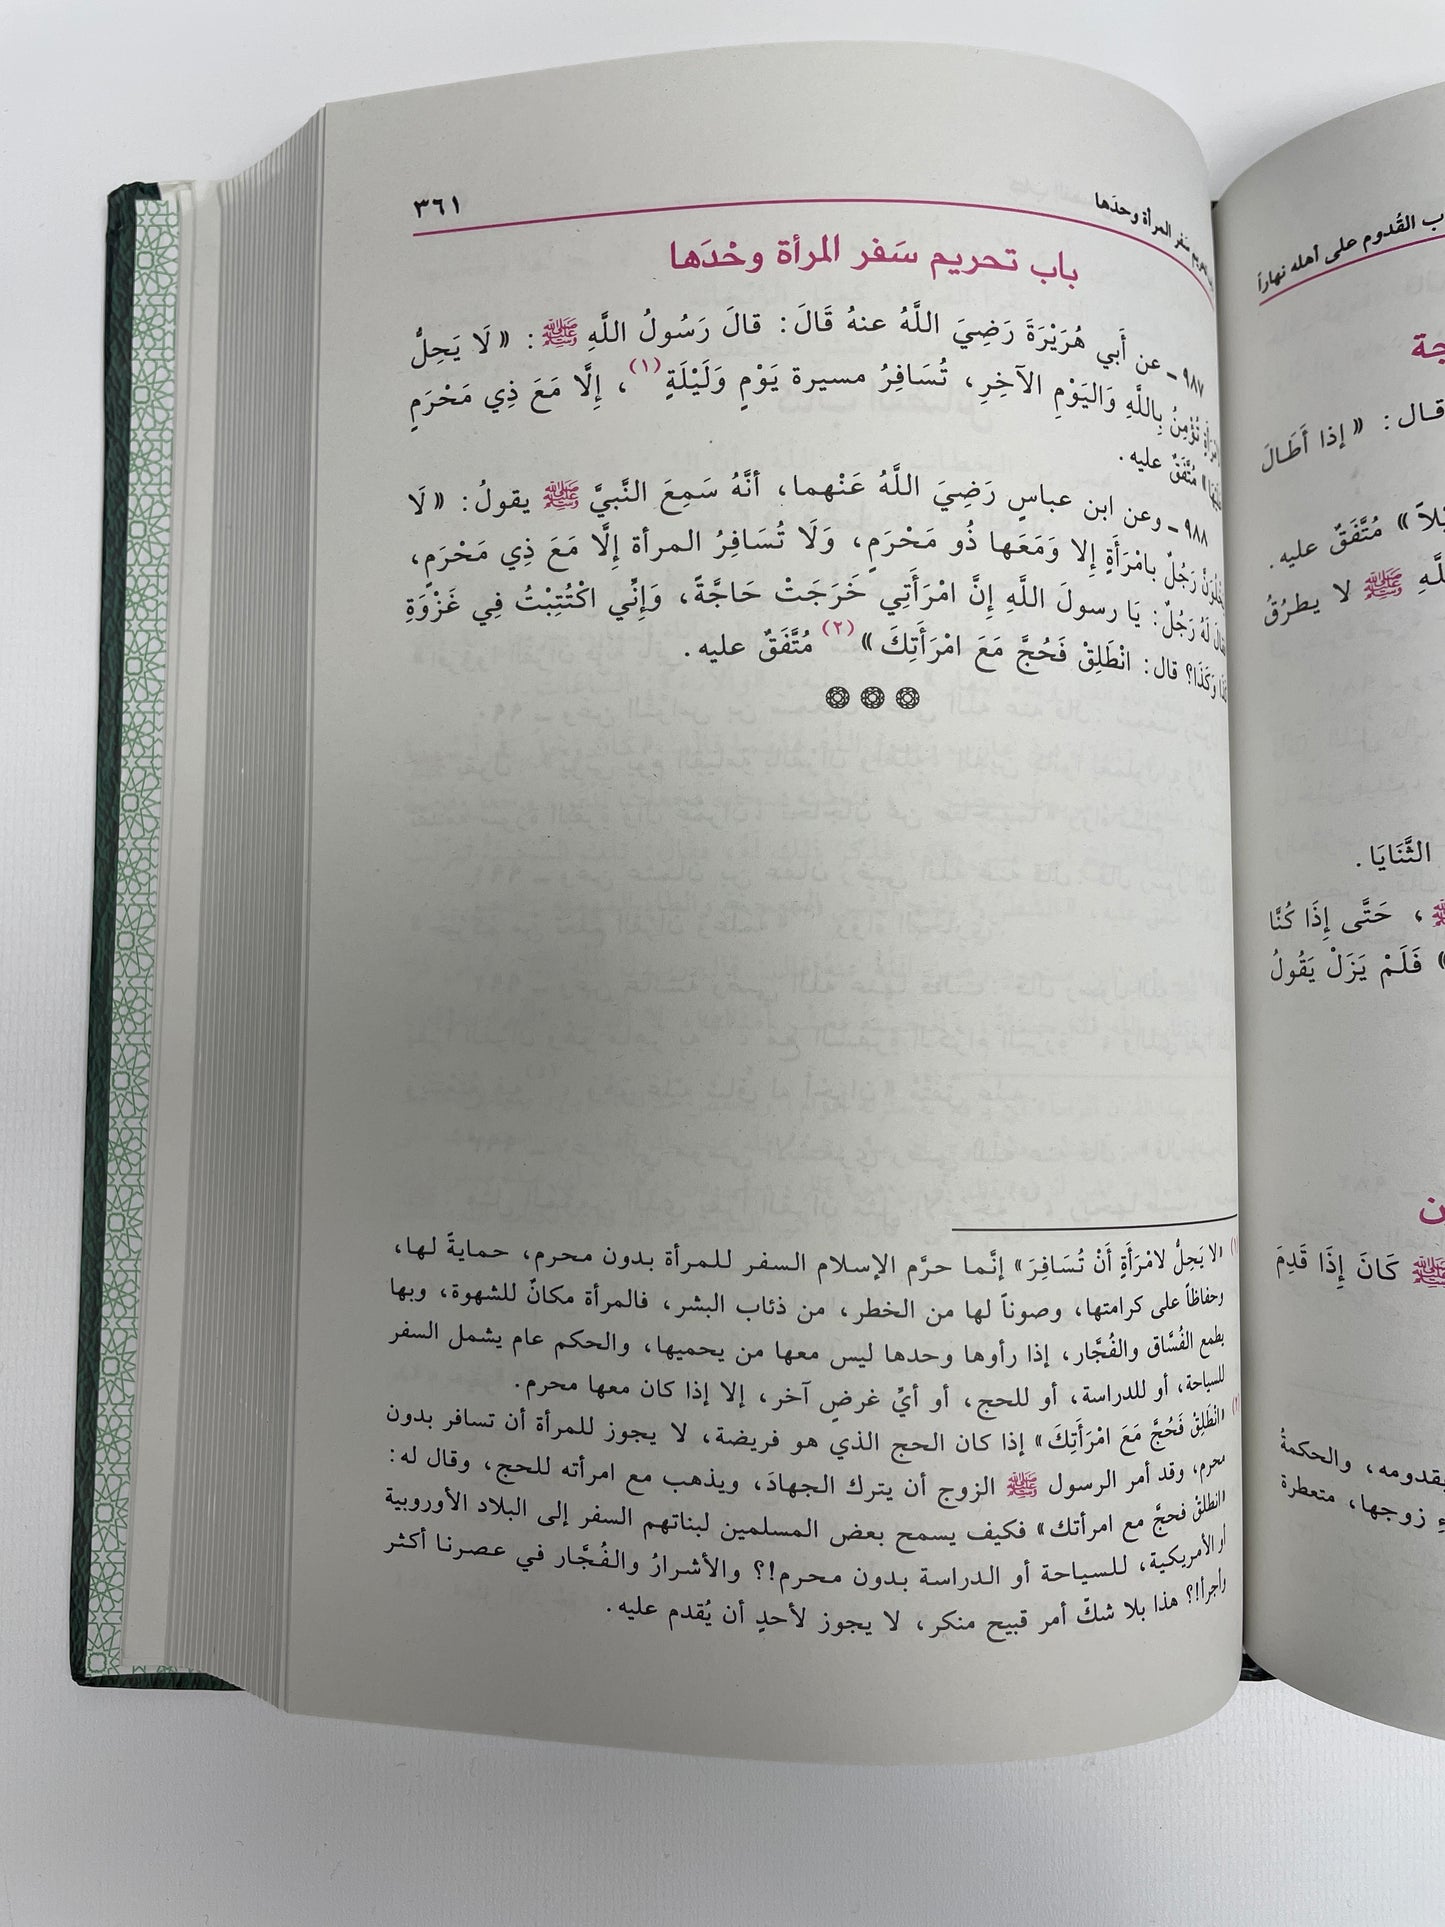 ٣٦١
باب تحريم سَفر المرأة وحدَها
باب تحريم سَفر المرأة وحْدَها
٩٨٧ ـ عن أَبي هُرَيْرَةَ رَضِيَ اللَّهُ عنهُ قَالَ: قالَ رَسُولُ اللَّهِ ﷺ: «لَا يَحِلُّ
لامْرَأَةٍ تُؤْمِنُ بِاللَّهِ وَاليَوْمِ الآخِرِ، تُسَافِرُ مسيرة يَوْمٍ وَلَيْلَةٍ(١)، إِلَّا مَعَ ذِي مَحْرَمٍ
عَلَيْهَا» مُتَّفَقٌ عليه.
٩٨٨ ـ وعن ابن عباسٍ رَضِيَ اللَّهُ عَنْهما، أنَّهُ سَمِعَ النَّبيَّ ﷺ يقولُ: «لَا
يَخْلُوَنَّ رَجُلٌ بامْرَأَةٍ إِلا وَمَعَها ذُو مَحْرَمٍ، وَلَا تُسَافِرُ المرأة إِلَّا مَعَ ذِي مَحْرَمٍ،
فقالَ لَهُ رَجُلٌ: يَا رسولَ اللَّهِ إِنَّ امْرَأَتِي خَرَجَتْ حَاجَّةً، وَإِنِّي اكْتُتِبْتُ فِي غَزْوَةِ
كَذَا وَكَذَا؟ قال: انْطَلِقْ فَحُجَّ مَعَ امْرَأَتِكَ»(٢) مُتَّفَقٌ عليه.
(١) «لا يَحِلُّ لامْرَأَةٍ أَنْ تُسَافِرَ» إنَّما حرَّم الإسلام السفر للمرأة بدون محرم، حمايةً لها،
وحفاظاً على كرامتها، وصوناً لها من الخطر، من ذئاب البشر، فالمرأة مكانٌ للشهوة، وبها
يطمع الفُسَّاق والفُجَّار، إذا رأوها وحدها ليس معها من يحميها، والحكم عام يشمل السفر
للسياحة، أو للدراسة، أو للحج، أو أيِّ غرضٍ آخر، إلا إذا كان معها محرم.
(٢) «انْطَلِقْ فَحُجَّ مَعَ امْرَأَتِكَ» إذا كان الحج الذي هو فريضة، لا يجوز للمرأة أن تسافر بدون
محرم، وقد أمر الرسول ﷺ الزوج أن يترك الجهادَ، ويذهب مع امرأته للحج، وقال له:
«انطلقْ فحجَّ مع امرأتك» فكيف يسمح بعض المسلمين لبناتهم السفر إلى البلاد الأوروبية
أو الأمريكية، للسياحة أو الدراسة بدون محرم!؟ والأشرارُ والفُجَّار في عصرنا أكثر
وأجرأ!؟ هذا بلا شكّ أمر قبيح منكر، لا يجوز لأحدٍ أن يُقدم عليه.
ب القُدوم على أهله نهاراً
قال: «إذا أَطَالَ
مُتَّفَقٌ عليه.
ﷺ لا يطرُقُ
الثَّنَايَا.
، حَتَّى إِذَا كُنَّا
» فَلَمْ يَزَلْ يَقُولُ
ﷺ كَانَ إِذَا قَدِمَ
بقدومه، والحكمةُ
زوجها، متعطرة